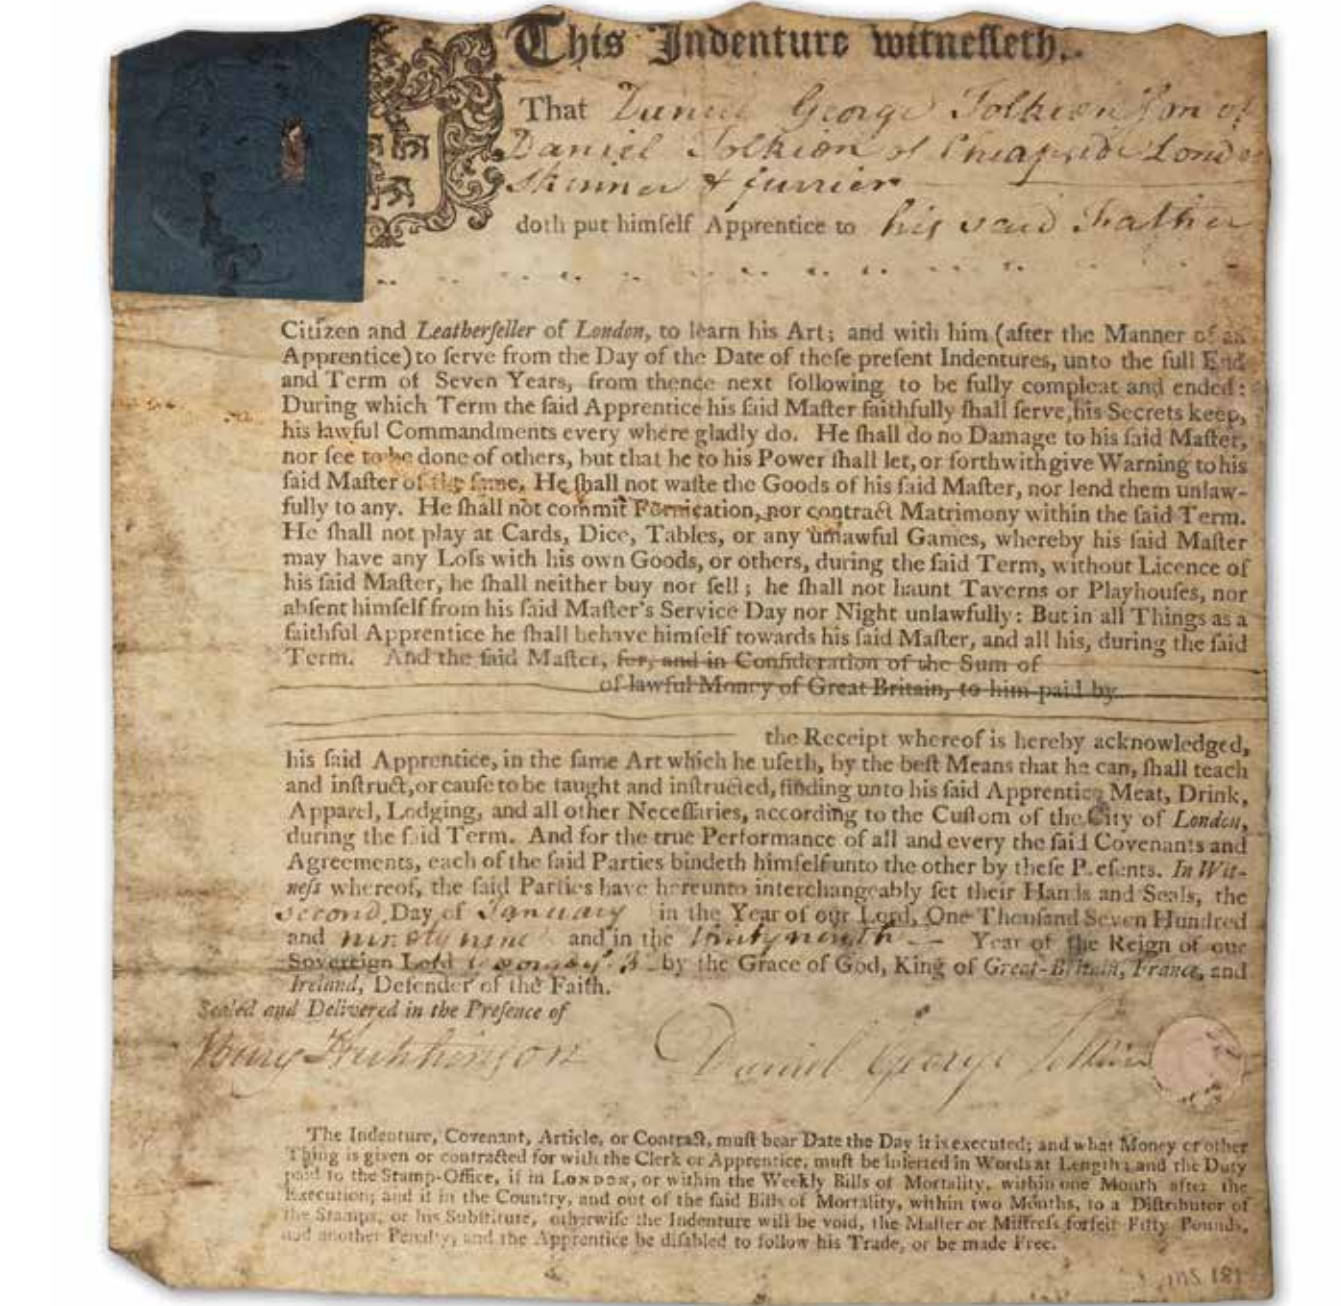 This Indenture witneſſeth,
That Daniel George Tolkien Son of
Daniel Tolkien of Cheapside London
Skinner & furrier
doth put himſelf Apprentice to his said Father
Citizen and Leatherſeller of London, to learn his Art; and with him (after the Manner of an
Apprentice) to ſerve from the Day of the Date of theſe preſent Indentures, unto the full End
and Term of Seven Years, from thence next following to be fully compleat and ended:
During which Term the ſaid Apprentice his ſaid Maſter faithfully ſhall ſerve, his Secrets keep,
his lawful Commandments every where gladly do. He ſhall do no Damage to his ſaid Maſter,
nor ſee to be done of others, but that he to his Power ſhall let, or forthwith give Warning to his
ſaid Maſter of the ſame. He ſhall not waſte the Goods of his ſaid Maſter, nor lend them unlaw-
fully to any. He ſhall not commit Fornication, nor contract Matrimony within the ſaid Term.
He ſhall not play at Cards, Dice, Tables, or any unlawful Games, whereby his ſaid Maſter
may have any Loſs with his own Goods, or others, during the ſaid Term, without Licence of
his ſaid Maſter, he ſhall neither buy nor ſell; he ſhall not haunt Taverns or Playhouſes, nor
abſent himſelf from his ſaid Maſter's Service Day nor Night unlawfully: But in all Things as a
faithful Apprentice he ſhall behave himſelf towards his ſaid Maſter, and all his, during the ſaid
Term. And the ſaid Maſter, for, and in Conſideration of the Sum of
of lawful Money of Great Britain, to him paid by
the Receipt whereof is hereby acknowledged,
his ſaid Apprentice, in the ſame Art which he uſeth, by the beſt Means that he can, ſhall teach
and inſtruct, or cauſe to be taught and inſtructed, finding unto his ſaid Apprentice Meat, Drink,
Apparel, Lodging, and all other Neceſſaries, according to the Cuſtom of the City of London,
during the ſaid Term. And for the true Performance of all and every the ſaid Covenants and
Agreements, each of the ſaid Parties bindeth himſelf unto the other by theſe Preſents. In Wit-
neſs whereof, the ſaid Parties have hereunto interchangeably ſet their Hands and Seals, the
second Day of January in the Year of our Lord, One Thouſand Seven Hundred
and ninety nine and in the thirty nineth Year of the Reign of our
Sovereign Lord George 3 by the Grace of God, King of Great-Britain, France, and
Ireland, Defender of the Faith.
Sealed and Delivered in the Preſence of
Hutchinson Daniel George Tolkien
The Indenture, Covenant, Article, or Contract, muſt bear Date the Day it is executed; and what Money or other
Thing is given or contracted for with the Clerk or Apprentice, muſt be inſerted in Words at Length; and the Duty
paid to the Stamp-Office, if in LONDON, or within the Weekly Bills of Mortality, within one Month after the
Execution; and if in the Country, and out of the ſaid Bills of Mortality, within two Months, to a Diſtributor of
the Stamps, or his Subſtitute, otherwiſe the Indenture will be void, the Maſter or Miſtreſs forfeit Fifty Pounds,
and another Penalty, and the Apprentice be diſabled to follow his Trade, or be made Free.